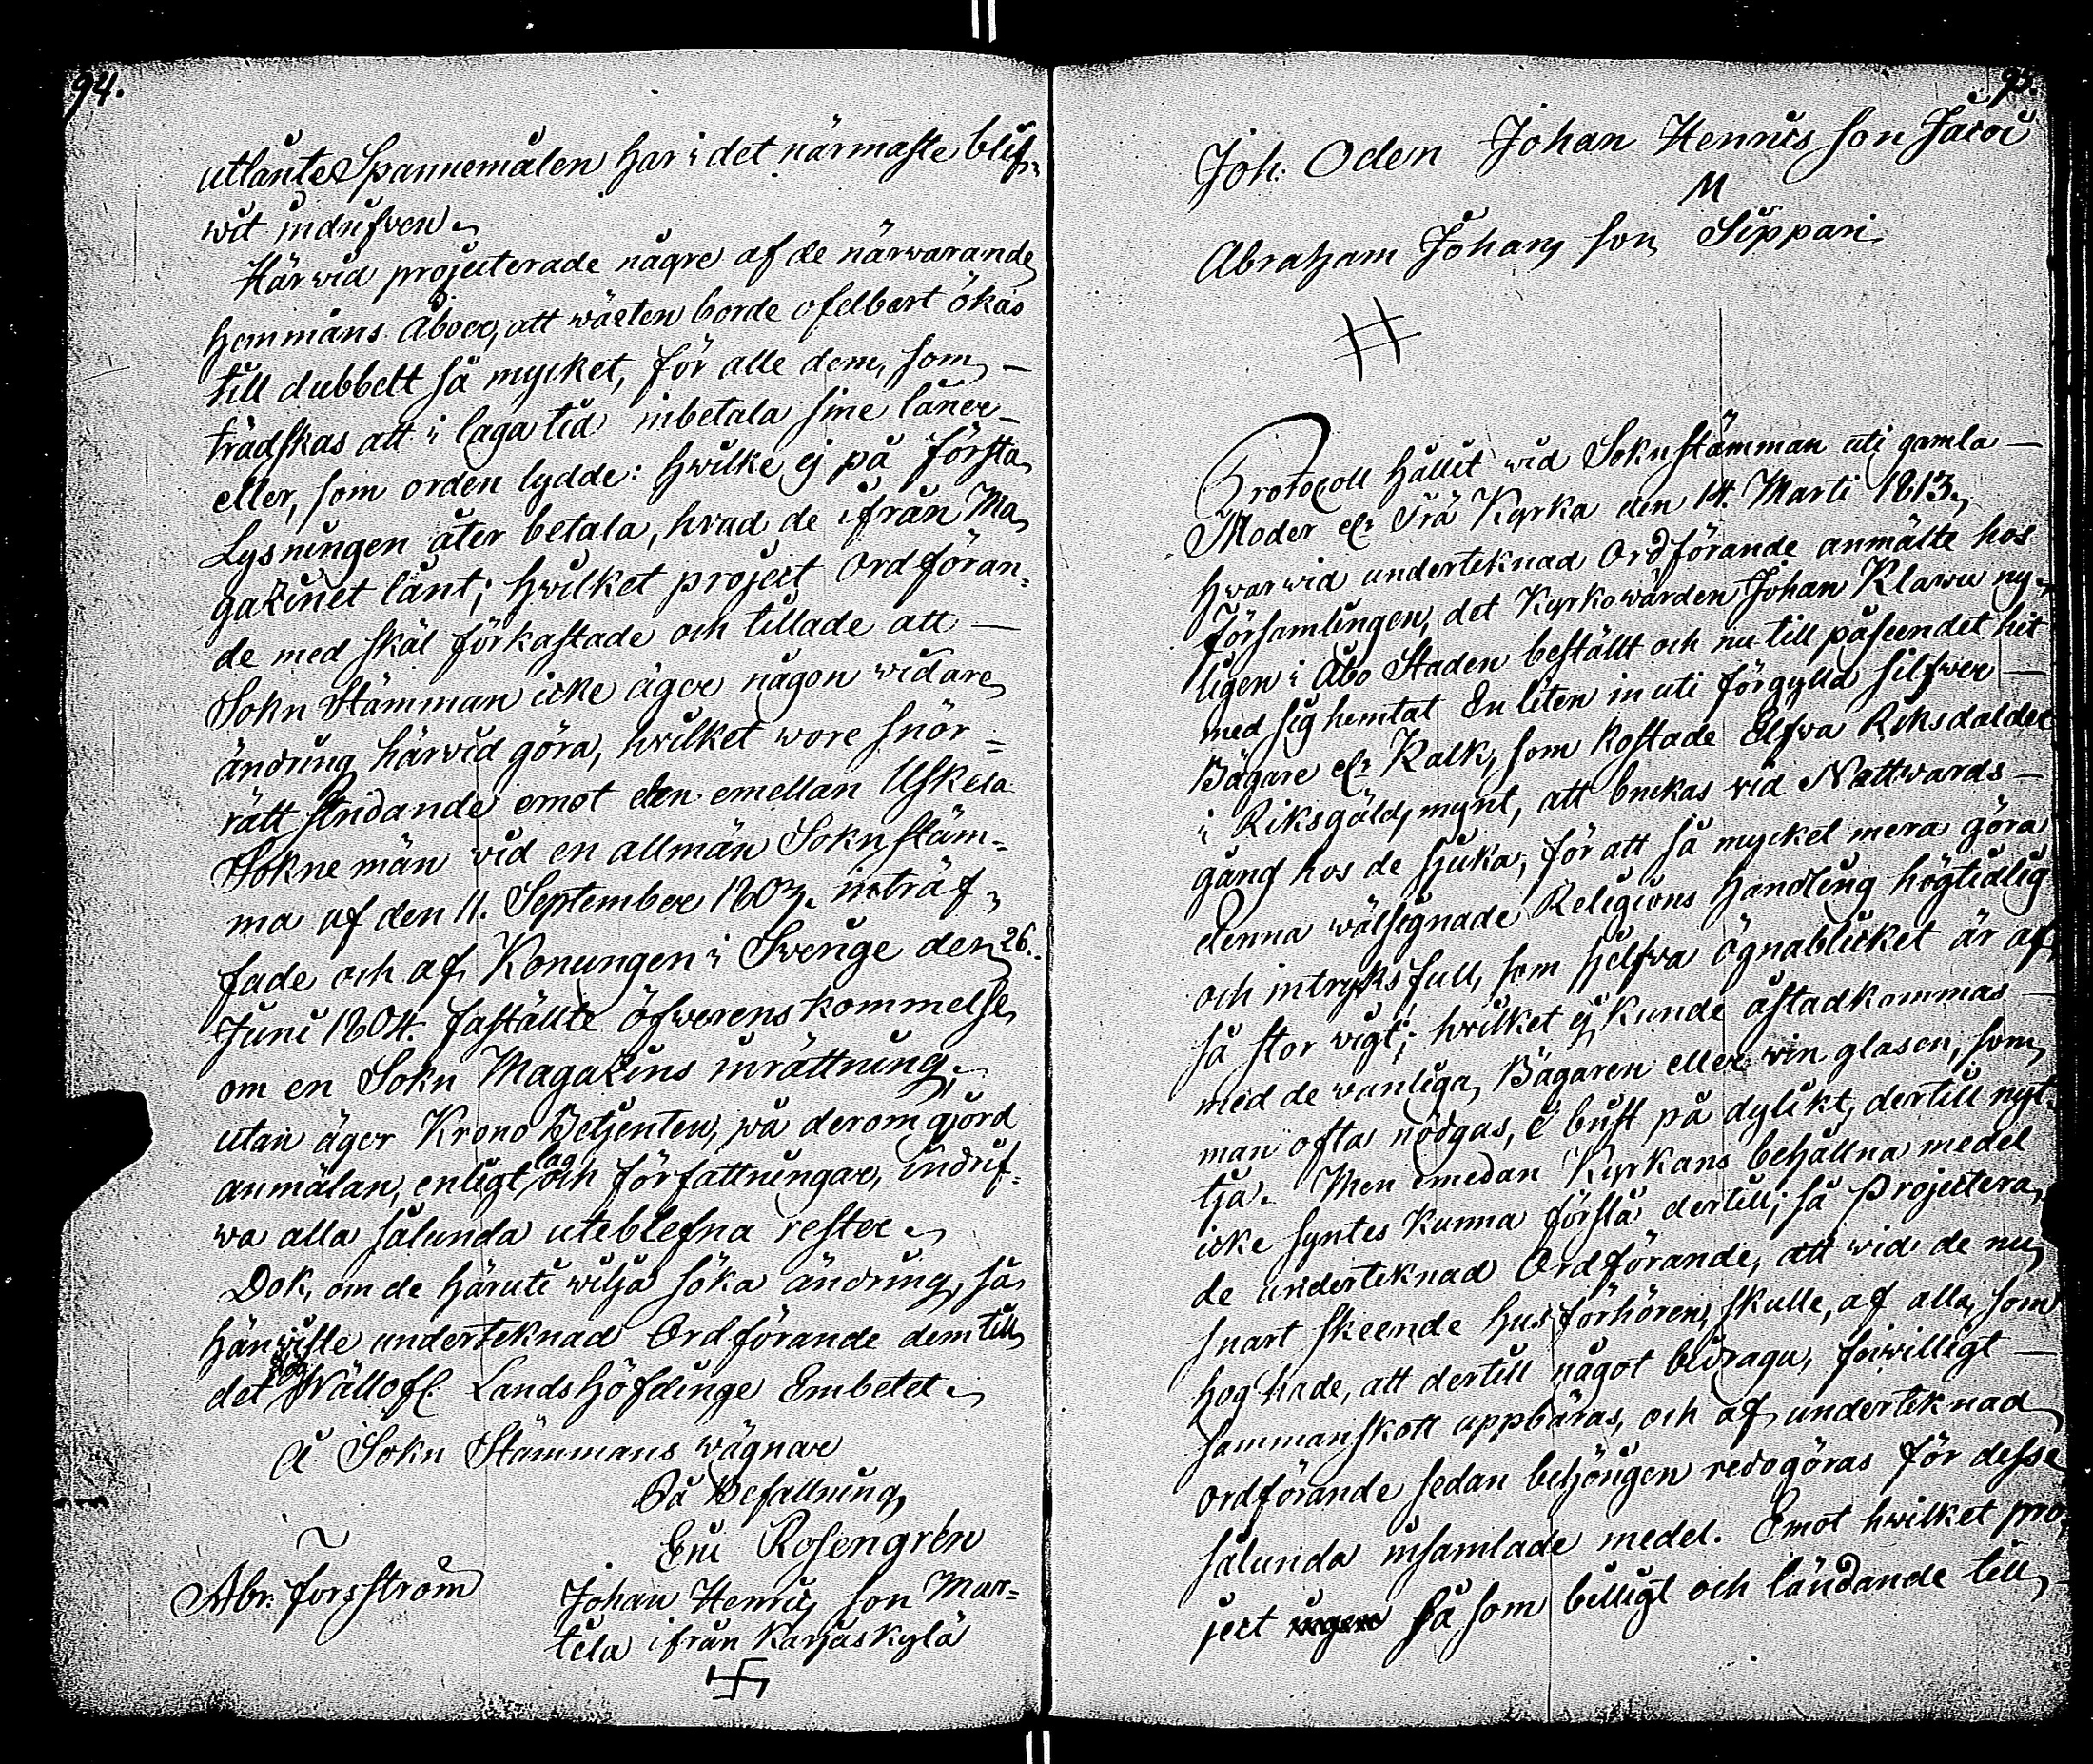 94.
utlånte Spannemålen har i det närmaste blif-
wit indrifven.
Härwid projecterade någre af de närwarande
hemmans åboer, att wäxten borde ofelbart ökas
till dubbelt så mycket, för alle dem, som
trädskas att i laga tid inbetala sine låner
eller, som orden lydde: hwilke ej på första
Lysningen åter betala, hvad de ifrån Ma-
gazinet lånt; hwilket project Ordföran-
de med skäl förkastade och tillade att
Sokn Stämman icke äger någon widare
ändring härwid göra, hwilket wore snör-
rätt stridande emot den emellan Uskela
Sokne män vid en allmän Soknstäm-
ma af den 11. September 1803. inträf-
fade och af Konungen i Swerige den 26.
Juni 1804. faställte öfwerenskommelse
om en Sokn Magazins inrättning;
utan äger Krono Betjenten, på derom gjord
anmälan, enligt lag och författningar, indrif-
wa alla sålunda uteblefna rester.
Dok, om de häruti wilja söka ändring, så
hänwiste underteknad Ordförande dem till
det Wällofl. Landshöfdinge Embetet.
Å Sokn Stämmans wägnar
På Befallning
Eric Rosengrén
Abr. Forsström
Johan Henrics son Mar-
tila ifrån Karjaskylä
95.
Joh: Oden Johan Henrics son Jacoi
M
Abraham Johans son Sippari
Protocoll hållit wid Soknstämman uti gamla
Moder elr Trä Kyrka den 14. Marti 1813,
hvarwid underteknad Ordförande anmälte hos
församlingen, det Kyrkowärden Johan Klawu ny-
ligen i Åbo Staden beställt och nu till påseendet hit
med sig hemtat En liten inuti förgylld silfwer
Bägare elr Kalk, som kostade Elfva Riksdaler
i Riksgälds mynt, att brukas vid Nattwards-
gång hos de sjuka, för att så mycket mera göra
denna wälsignade Religions handling högtidlig
och intryksfull, som sjelfva ögnablicket är af
så stor vigt; hvilket ej kunde åstadkommas
med de vanliga Bägaren eller vin glasen, som
man ofta nödgas, i brist på dylikt, dertill nyt-
tja. Men emedan Kyrkans behållna medel
icke syntes kunna förslå dertill; så projectera-
de underteknad Ordförande, att wid de nu
snart skeende husförhören, skulle, af alla, som
hog hade, att dertill något bidraga, friwilligt
sammanskott uppbäras, och af underteknad
Ordförande sedan behörigen redogöras för desse
sålunda insamlade medel. Emot hwilket pro-
ject såsom billigt och ländande till